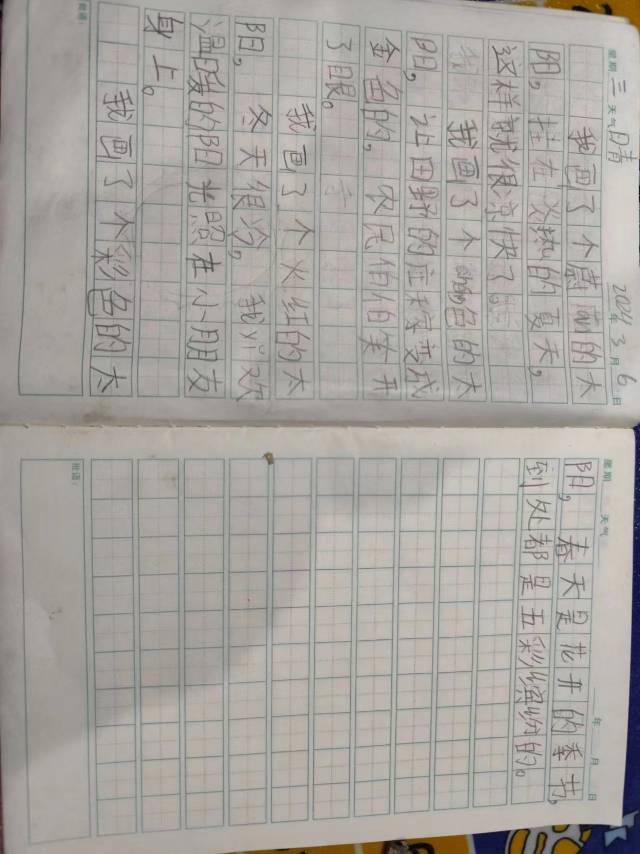 2024年3月6日
星期三 天气晴
我画了个蓝蓝的太
阳，挂在火热的夏天，
这样就很凉快了。
我画了个金色的太
阳，让田野的庄稼变成
金色的，农民伯伯笑开
了眼。
我画了个火红的太
阳，冬天很冷，我喜欢
温暖的阳光照在小朋友
身上。
我画了个彩色的太
批语：
星期 天气 年 月 日
阳，春天是花开的季节，
到处都是五彩缤纷的。
批语：